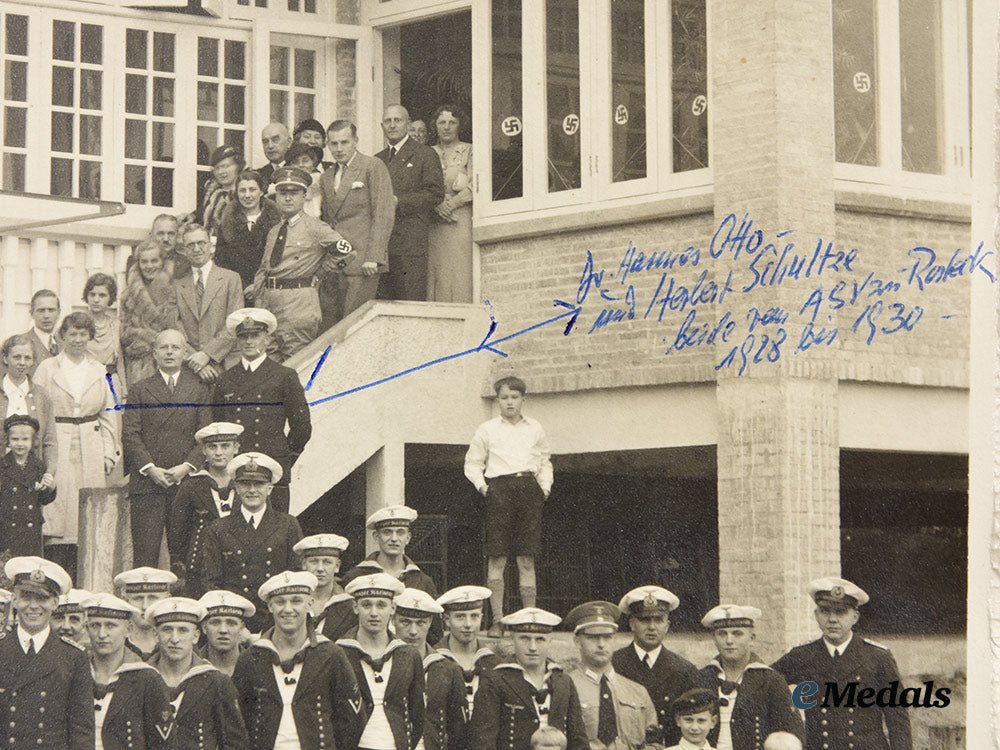 Dr Hannes Otto -
und Herbert Schultze
beide vom ASV zu Rostock
1928 bis 1930 -
eMedals